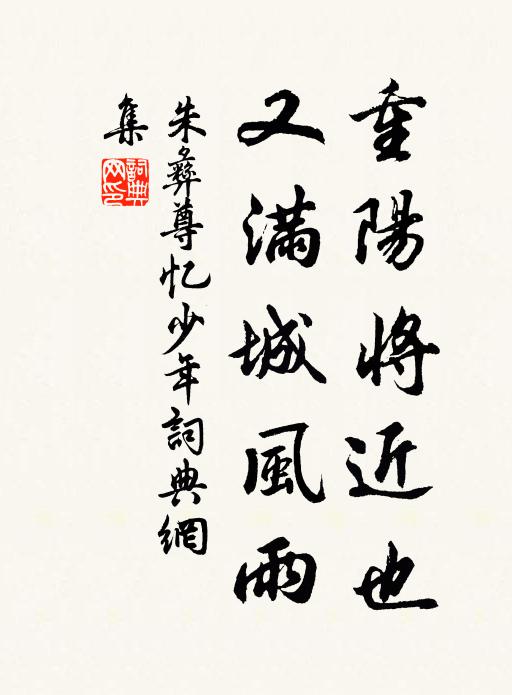 重陽將近也
又滿城風雨
朱彝尊忆少年詞典網
集
詞典
网印